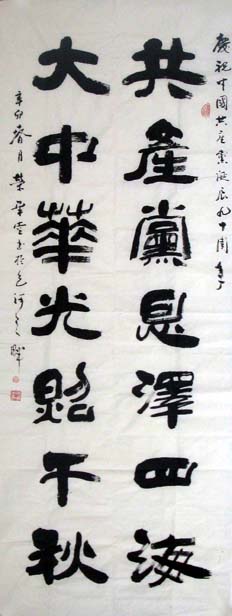 慶祝中國共產黨誕辰九十周年
共產黨恩澤四海
大中華光照千秋
辛卯春月榮